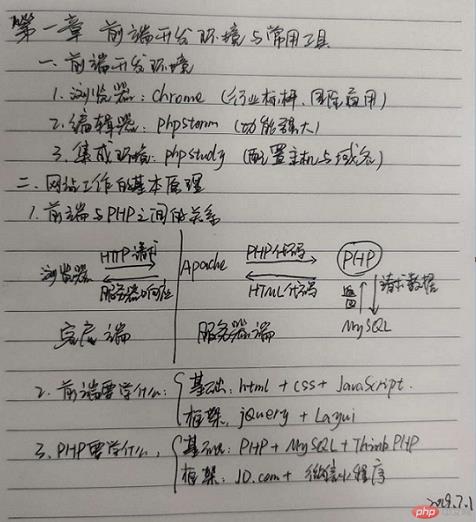 第一章 前端开发环境与常用工具
一. 前端开发环境
1. 浏览器: chrome (行业标杆、国际应用)
2. 编辑器: phpstorm (功能强大)
3. 集成环境: phpstudy (配置主机与域名)
二. 网站工作的基本原理
1. 前端与PHP之间的关系
浏览器 HTTP请求 服务器响应 Apache PHP代码 HTML代码 PHP
返回 请求数据
客户端 服务器端 MySQL
2. 前端要学什么: 基础: html + css + JavaScript.
框架: jQuery + Layui
3. PHP要学什么: 基础: PHP + MySQL + ThinkPHP
框架: JD.com + 微信小程序
2019.7.1
php